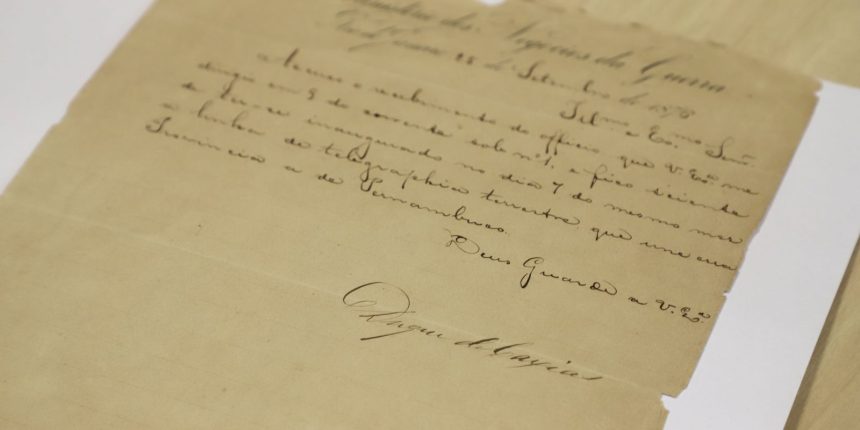 Ministerio dos Negocios da Guerra
Rio de Janeiro 25 de Setembro de 1875
Illmo e Exmo Senr.
Accuso o recebimento do officio que V. Exa. me
dirigio em 9 do corrente sob nº 1, e fico sciente
de ter-se inaugurado no dia 7 do mesmo mez
a linha de telegraphia terrestre que une essa
Provincia a de Pernambuco.
Deus Guarde a V. Exa.
Duque de Caxias